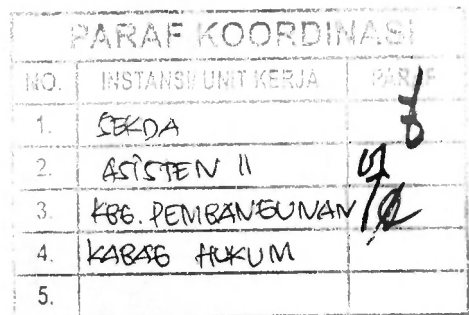 PARAF KOORDINASI
NO. INSTANSI/UNIT KERJA PARAF
1. SEKDA
2. ASISTEN II
3. KBG. PEMBANGUNAN
4. KABAG HUKUM
5.